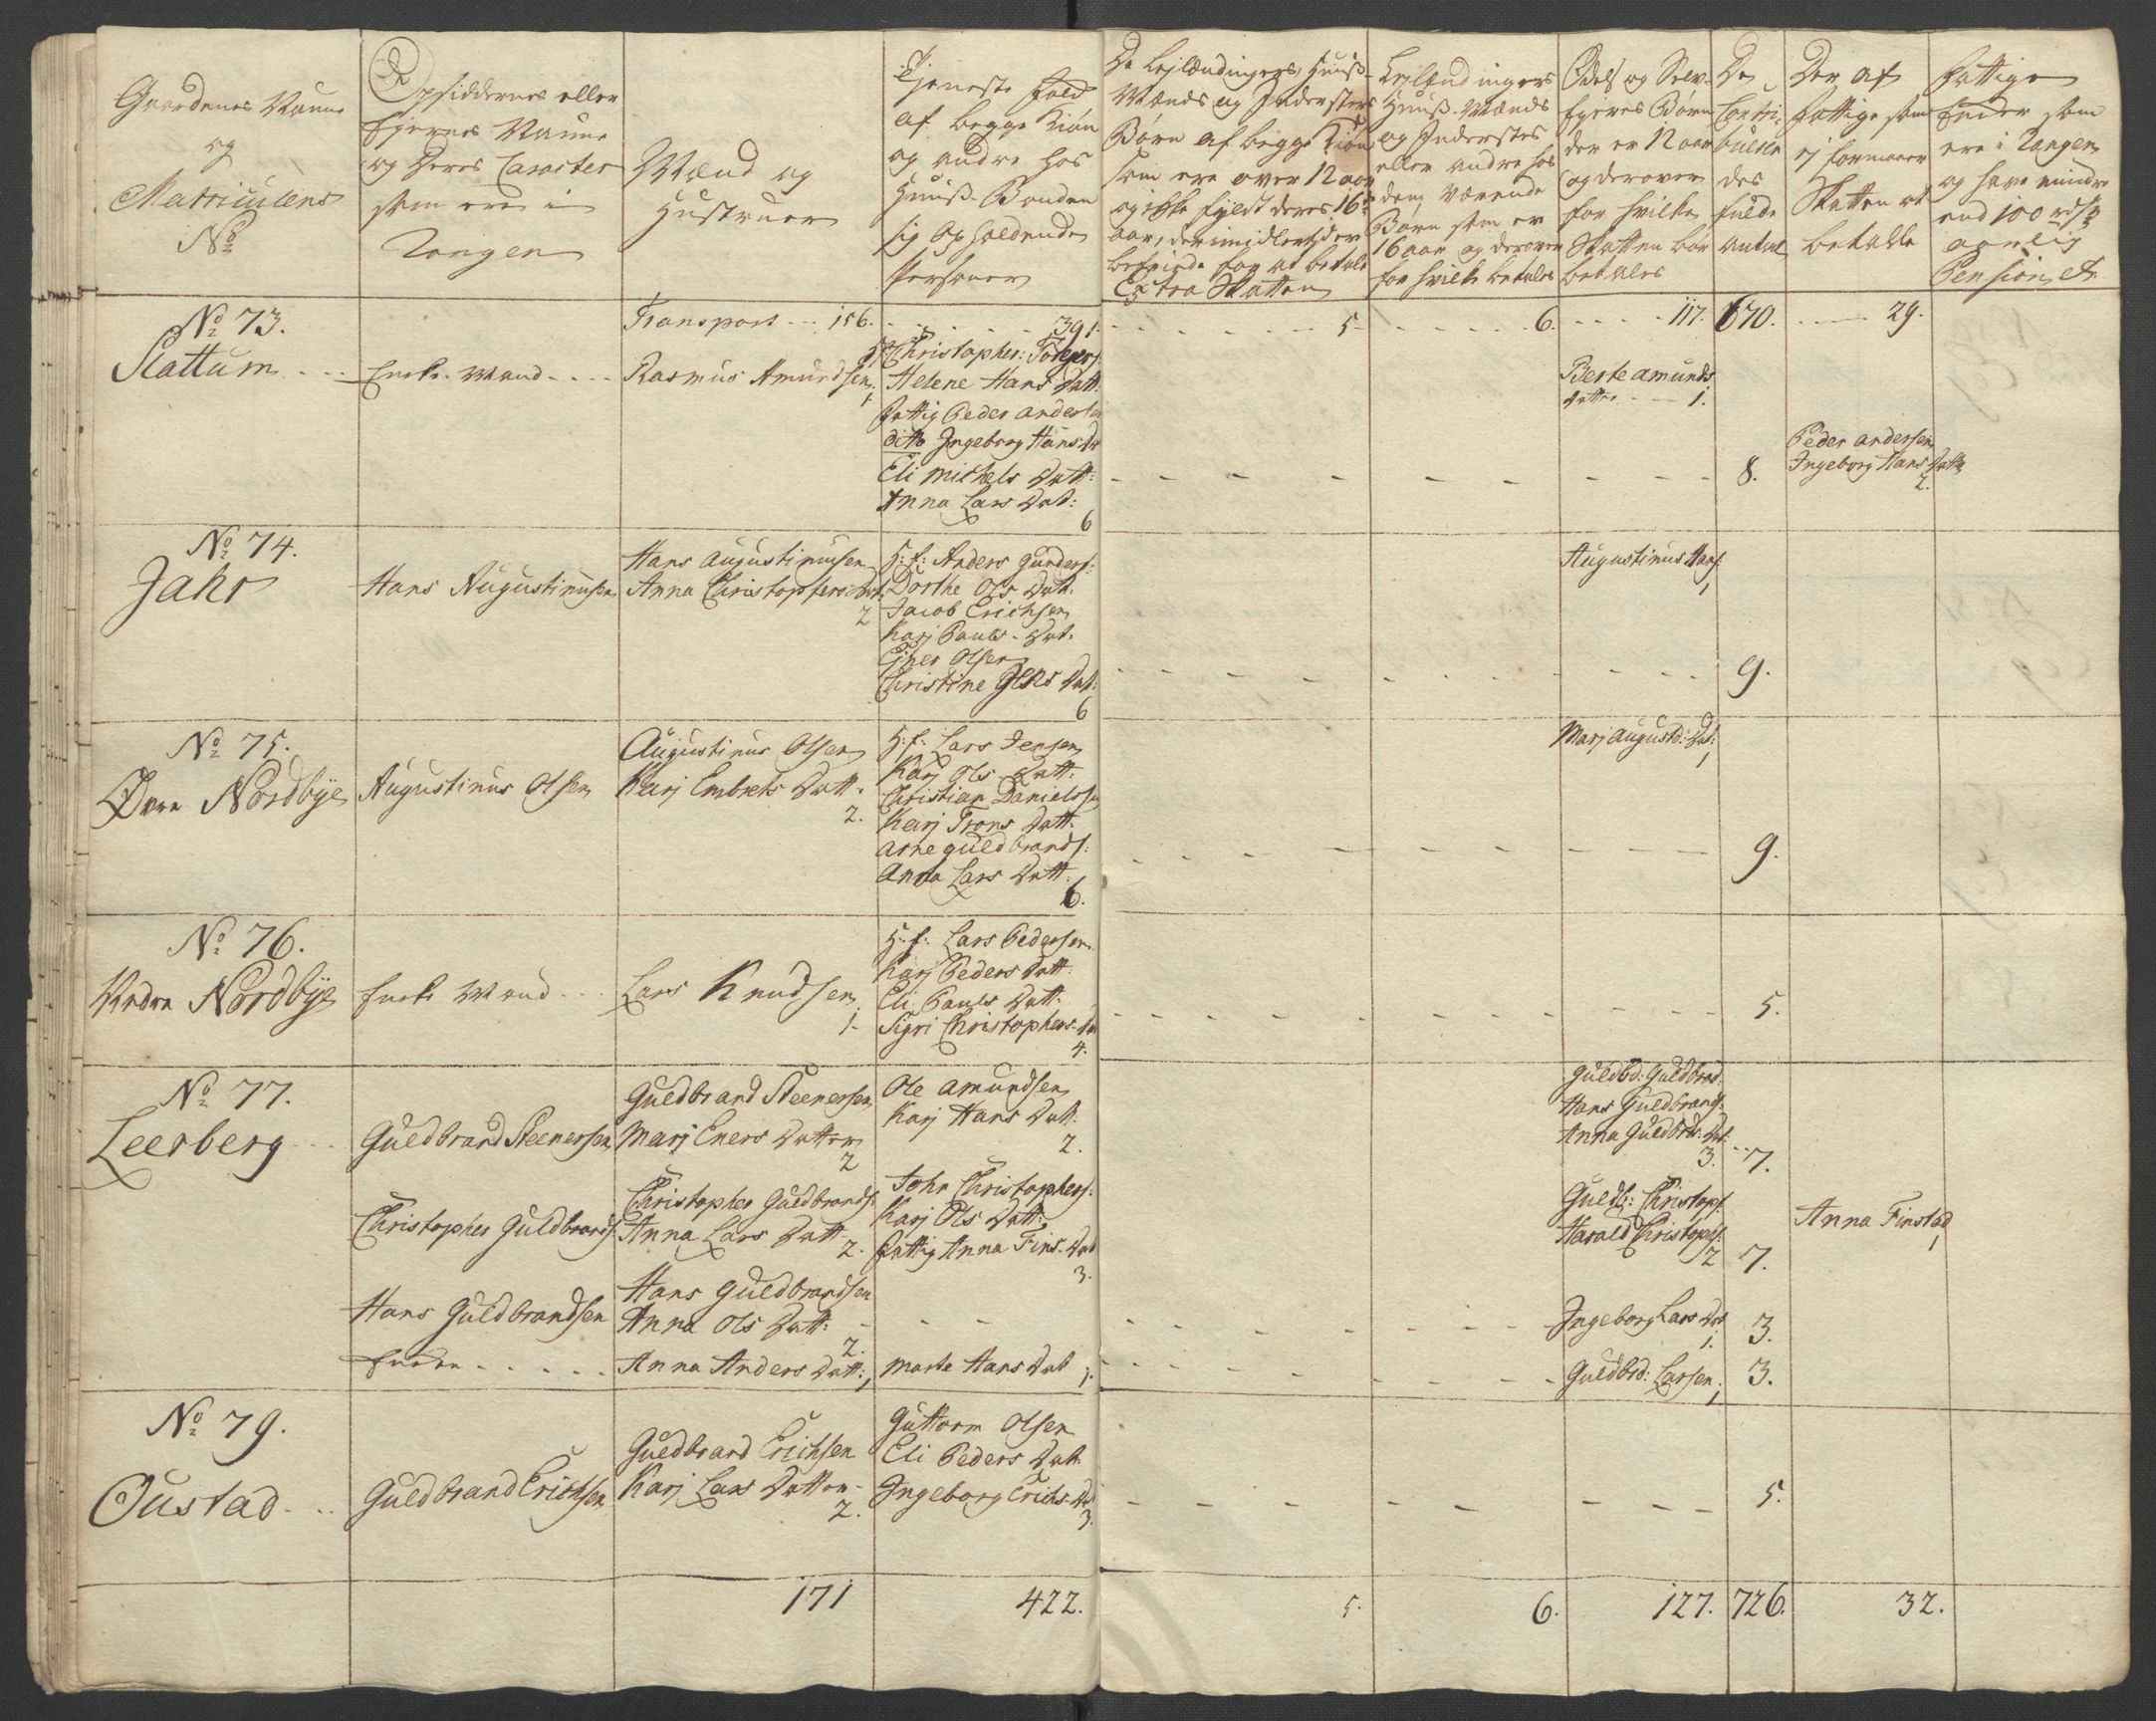 Gaardenes Naune
og
Matriculens
No
Opsiddernes eller
Ejernes Naune
og Deres Caracter
som ere i
Tangen
Mænd og
Hustruer
Tjeneste Folk
af begge Kiøn
og andre hos
Huus-Bonden
sig opholdende
Personer
De Lejlændingers, Huus-
Mænds og Indersters
Børn af begge Kiøn
som ere over 12 aar
og ikke fyldt deres 16de
aar, der imidlertid er
befriede for at betale
Extra Skatten
Lejlændingers
Huus-Mænds
og Indersters
eller andre hos
dem værende
Børn som er
16 aar og derover
for hvilke betales
Odels og Selv-
Ejeres Børn
der er 12 aar
og derover
for hvilke
Skatten bør
betales
De
Contri-
bueren
des
fulde
Antal
Der af
Fattige som
ej formaaer
Skatten at
betalle
Fattige
Enker som
ere i Tangen
og have mindre
end 100 rd
aarlig
Pension etc
Transport - - 156. 391. 5. 6. 117. 670. 29.
No 73.
Slattum Enke-Mand Rasmus Amundsen
1.
Christopher Torgers:
Helene Hans Datt:
Fattig Peder Anders
ditto Ingeborg Hans D
Eli Michels Datt:
Anna Lars Dat:
6
Berte Amunds
Datter 1.
8.
Peder Andersen
Ingeborg Hans Datt
2.
No 74.
Jahr Hans Augustinusen
Hans Augustinusen
Anna Christophers Dat
2
H: f: Anders Gunders:
Dorthe Ols Dat.
Jacob Erichsen
Karj Pauls-Dat.
Ejner Olsen
Christine Jens Dat:
6
Augustinus Hans:
1
9.
No 75.
Øvre Nordbye Augustinus Olsen
Augustinus Olsen
Karj Embrets Datt.
2.
H: f: Lars Jensen
Karj Ols Datt:
Christian Danielsen
Karj Trons Datt.
Arne Guldbrands:
Anna Lars Datt.
6.
Marj August: Dat:
1
9.
No 76.
Nedre Nordbye Enke Mand Lars Knudsen
1.
H: f: Lars Pedersen
Karj Peders Datt:
Eli Pauls Datt:
Sigri Christophers-D
4.
5.
No 77.
Leerberg Guldbrand Steenersen
Guldbrand Steenersen
Marj Eners Datter
2
Ole Amundsen
Karj Hans Dat:
2.
Guldbd: Guldbrad:
Hans Guldbrands:
Anna Guldbrds: Dat:
3. 7.
Christopher Guldbrands:
Christopher Guldbrands:
Anna Lars Datt
2.
John Christophers:
Karj Ols Datt:
Fattig Anna Fins-Dat
3.
Guldb: Christoph:
Harald Christoph:
2 7.
Anna Finstad
1
Hans Guldbrandsen
Hans Guldbrandsen
Anna Ols Datt:
2.
Ingeborg Lars Dat
1. 3.
Enken Anna Anders Datt: 1 Marte Hans Dat 1. Guldbrd: Larsen 1 3.
No 79.
Oustad Guldbrand Erichsen
Guldbrand Erichsen
Karj Lars Datter
2.
Guttorm Olsen
Eli Peders Dat
Ingeborg Erichs-D
3.
5.
171 422. 5. 6. 127. 726. 32.